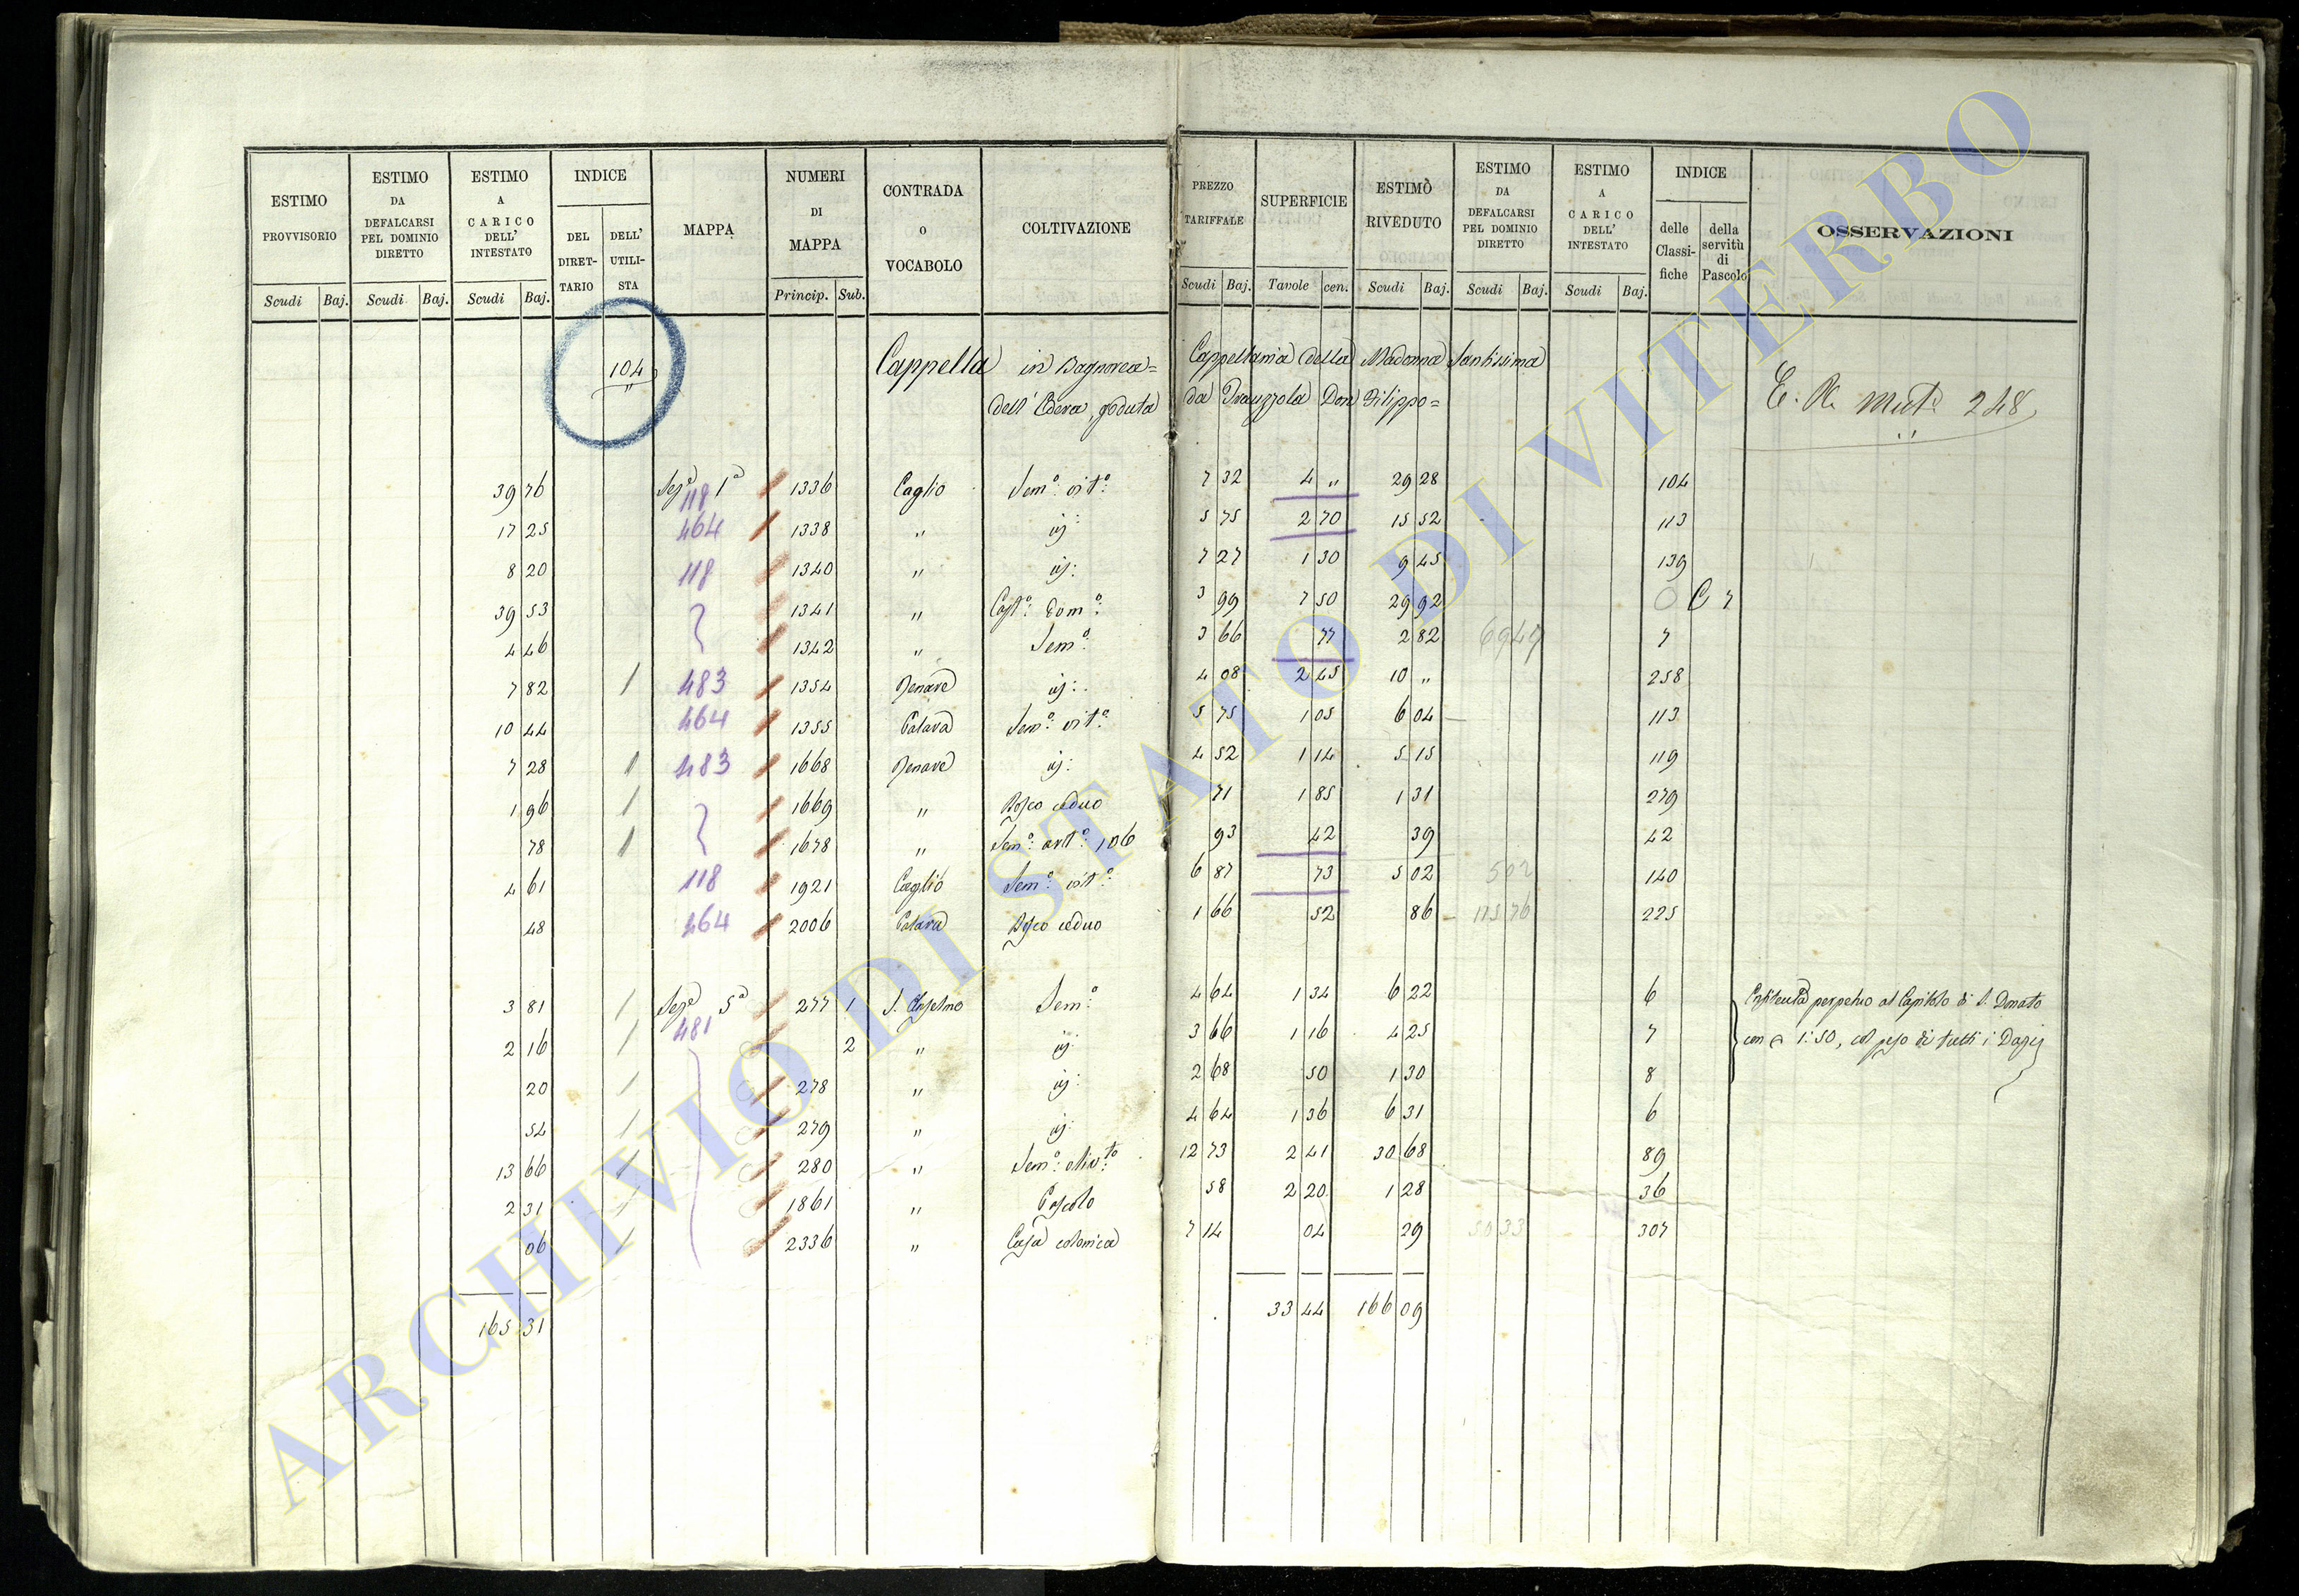 ESTIMO PROVVISORIO
ESTIMO DA DEFALCARSI PEL DOMINIO DIRETTO
ESTIMO A CARICO DELL' INTESTATO
INDICE
DEL DIRET- TARIO
DELL' UTILI- STA
MAPPA
NUMERI DI MAPPA
CONTRADA O VOCABOLO
COLTIVAZIONE
PREZZO TARIFFALE
SUPERFICIE
ESTIMO RIVEDUTO
ESTIMO DA DEFALCARSI PEL DOMINIO DIRETTO
ESTIMO A CARICO DELL' INTESTATO
INDICE
delle Classi- fiche
della servitù di Pascolo
OSSERVAZIONI
Scudi Baj. Scudi Baj. Scudi Baj. Princip. Sub. Scudi Baj. Tavole cen. Scudi Baj. Scudi Baj. Scudi Baj.
104 Cappella in Bagnorea= Cappellania della Madonna Santissima
dell' Edera, goduta da Don Filippo=
248
39 76 Sez.e 1a 1336 Caglio Sem.o vit.o 7 32 4 " 29 28 104
118
17 25 464 1338 " id: 5 75 2 70 15 52 113
8 20 118 1340 " id: 7 27 1 30 9 45 139
39 53 1341 " Cast.o Dom.o: 3 99 7 50 29 92 0 C 7
4 46 1342 " Sem.o 3 66 77 2 82 69 49 7
7 82 483 1354 Renare id: 4 08 2 45 10 " 258
10 44 464 1355 Palara Sem.o vit.o 5 75 1 05 6 04 113
7 28 483 1668 Renare id: 4 52 1 14 5 15 119
1 96 1669 " Bosco ceduo 71 1 85 1 31 279
78 1678 " Sem.o 106 93 42 39 42
4 61 118 1921 Caglio Sem.o vit.o 6 87 73 5 02 502 140
48 464 2006 Palara Bosco ceduo 1 66 52 86 115 76 225
3 81 Sez.e 5a 277 1 S. Anselmo Sem.o 4 64 1 34 6 22 6 Enfiteusi perpetuo al Capitolo di S. Donato
481
2 16 2 " id: 3 66 1 16 4 25 7 con 1:50, col peso di tutti i Dazj
20 278 " id: 2 68 50 1 30 8
54 279 " id: 4 64 1 36 6 31 6
13 66 280 " Sem.o oliv.to 12 73 2 41 30 68 89
2 31 1861 " Pascolo 58 2 20 1 28 36
06 2336 " Casa colonica 7 14 04 29 50 33 307
165 31 33 44 166 09
ARCHIVIO DI STATO DI VITERBO